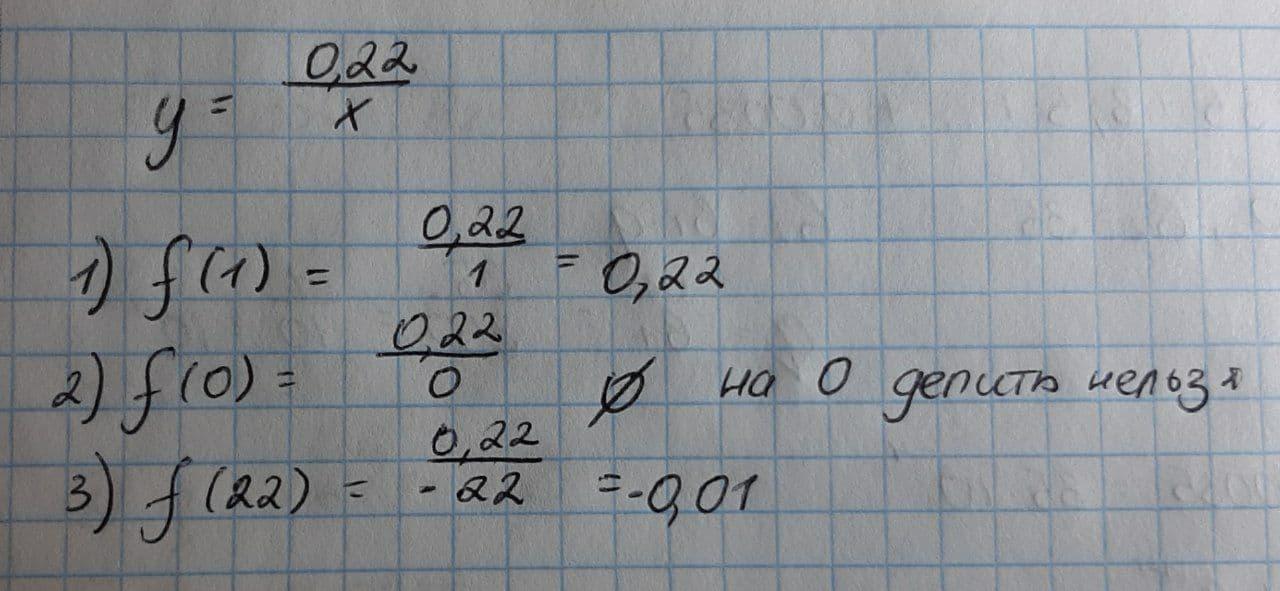 y = 0,22 / x
1) f(1) = 0,22 / 1 = 0,22
2) f(0) = 0,22 / 0 ∅ на 0 делить нельзя
3) f(22) = 0,22 / -22 = -0,01